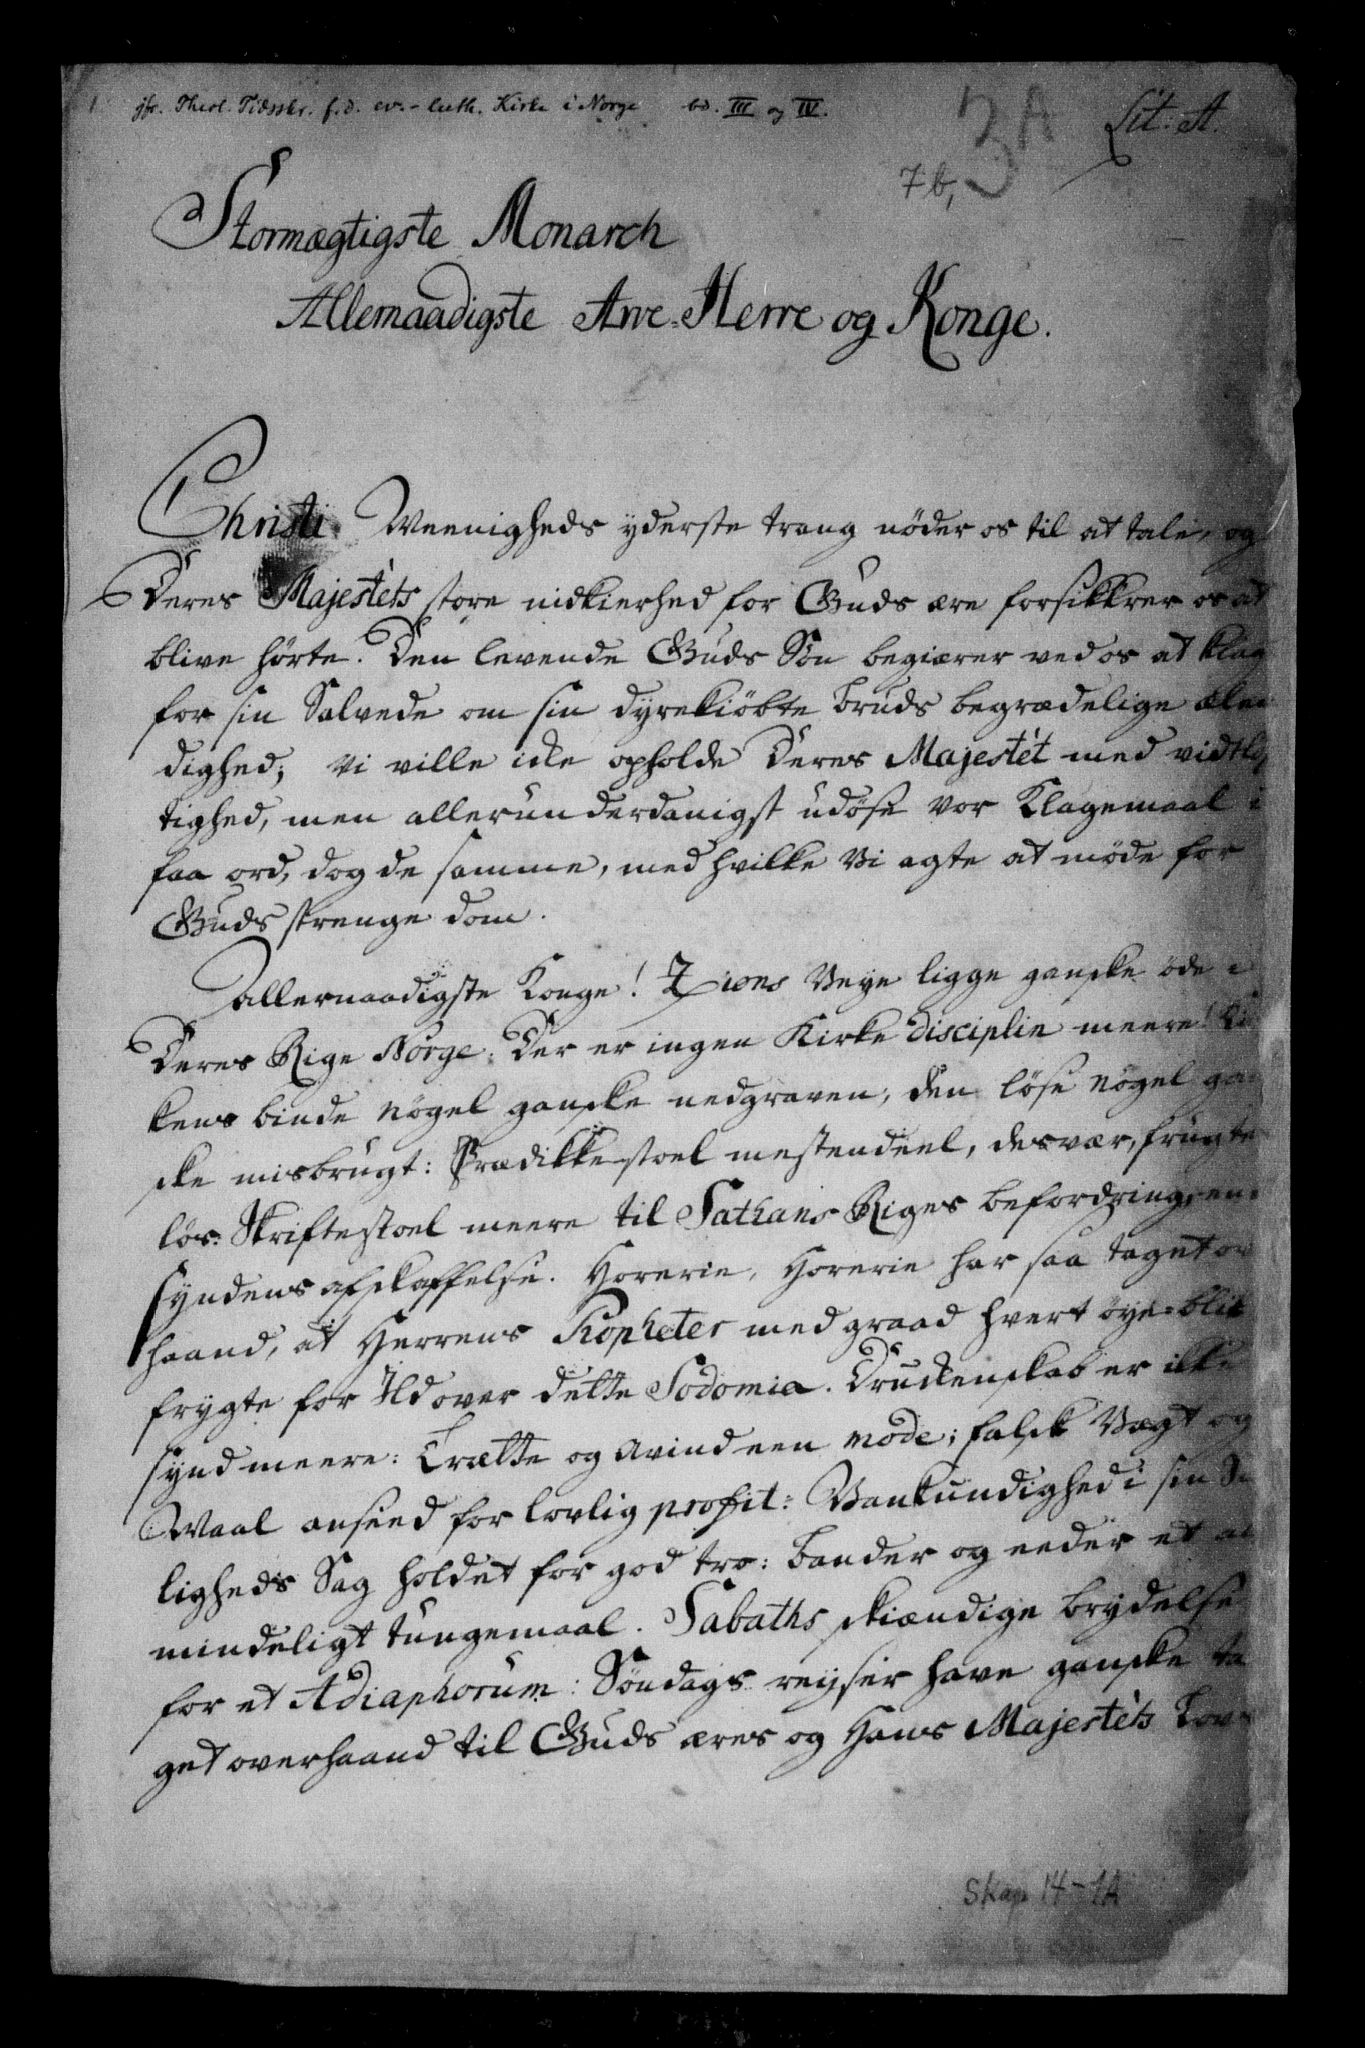 jfr. Theol. Tidsskr. f. d. ev.-luth. Kirke i Norge bd. III og IV.
3A
Lit: A.
7 b,
Stormægtigste Monarch
Allernaadigste Arve-Herre og Konge.
Christi Meenigheds yderste trang nöder os til at tale, og
Deres Majestets store nidkierhed for Guds ære forsikkrer os at
blive hörte. Den levende Guds Sön begiærer ved os at klag
for sin Salvede om sin dyrekiöbte bruds begrædelige ælen
dighed; Vi ville icke opholde Deres Majestet med vidtlöf
tighed, men allerunderdanigst udöse vor Klagemaal i
faa ord, dog de samme, med hvilke Vi agte at möde for
Guds strenge dom.
Allernaadigste Konge! Zions Veye ligge ganske öde i
Deres Rige Norge: Der er ingen Kirke disciplin meere! Kir
kens binde Nögel ganske nedgraven, den löse Nögel gan
ske misbrugt: Prædikkestoel mestendeel, desvær, frugte
lös: Skriftestoel meere til Sathans Riges befordring, en
syndens afskaffelse. Horerie, Horerie har saa taget over
haand, at Herrens Propheter med graad hvert öye-blik
frygte for Ild over dette Sodoma. Druckenskab er ikke
synd meere: Trætte og Avind een mode; falsk Vægt og
Maal anseed for lovlig profit: Vankundighed i sin Sa
ligheds Sag holdet for god tro: bander og eeder et al
mindeligt tungemaal. Sabaths skiændige brydelse
for et Adiaphorum: Söndags reyser have ganske ta
get overhaand til Guds æres og Hans Majestets Lov-
Skap 14-1A